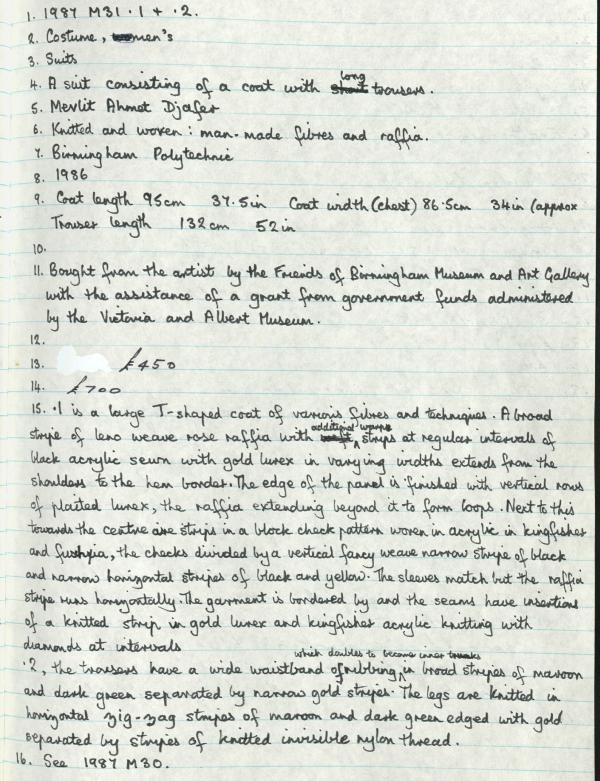 1. 1987 M31 ·1 + ·2.
2. Costume, men's
3. Suits
4. A suit consisting of a coat with long trousers.
5. Mevlit Ahmet Djafer
6. Knitted and woven: man-made fibres and raffia.
7. Birmingham Polytechnic
8. 1986
9. Coat length 95cm 37.5in Coat width (chest) 86·5cm 34in (approx
Trouser length 132cm 52in
10.
11. Bought from the artist by the Friends of Birmingham Museum and Art Gallery
with the assistance of a grant from government funds administered
by the Victoria and Albert Museum.
12.
13. £450
14. £700
15. ·1 is a large T-shaped coat of various fibres and techniques. A broad
stripe of leno weave rose raffia with additional warps strips at regular intervals of
black acrylic sewn with gold lurex in varying widths extends from the
shoulders to the hem border. The edge of the panel is finished with vertical rows
of plaited lurex, the raffia extending beyond it to form loops. Next to this
towards the centre are strips in a block check pattern woven in acrylic in kingfisher
and fushsia, the checks divided by a vertical fancy weave narrow stripe of black
and narrow horizontal stripes of black and yellow. The sleeves match but the raffia
stripe runs horizontally. The garment is bordered by and the seams have insertions
of a knitted strip in gold lurex and kingfisher acrylic knitting with
diamonds at intervals
·2, the trousers have a wide waistband of ribbing which doubles to become inner trunks in broad stripes of maroon
and dark green separated by narrow gold stripes. The legs are knitted in
horizontal zig-zag stripes of maroon and dark green edged with gold
separated by stripes of knitted invisible nylon thread.
16. See 1987 M30.